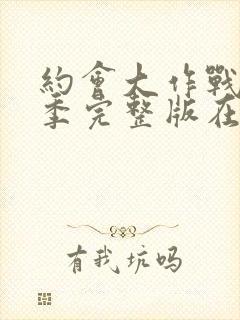 約會大作戰
季完整版在
有我坑吗